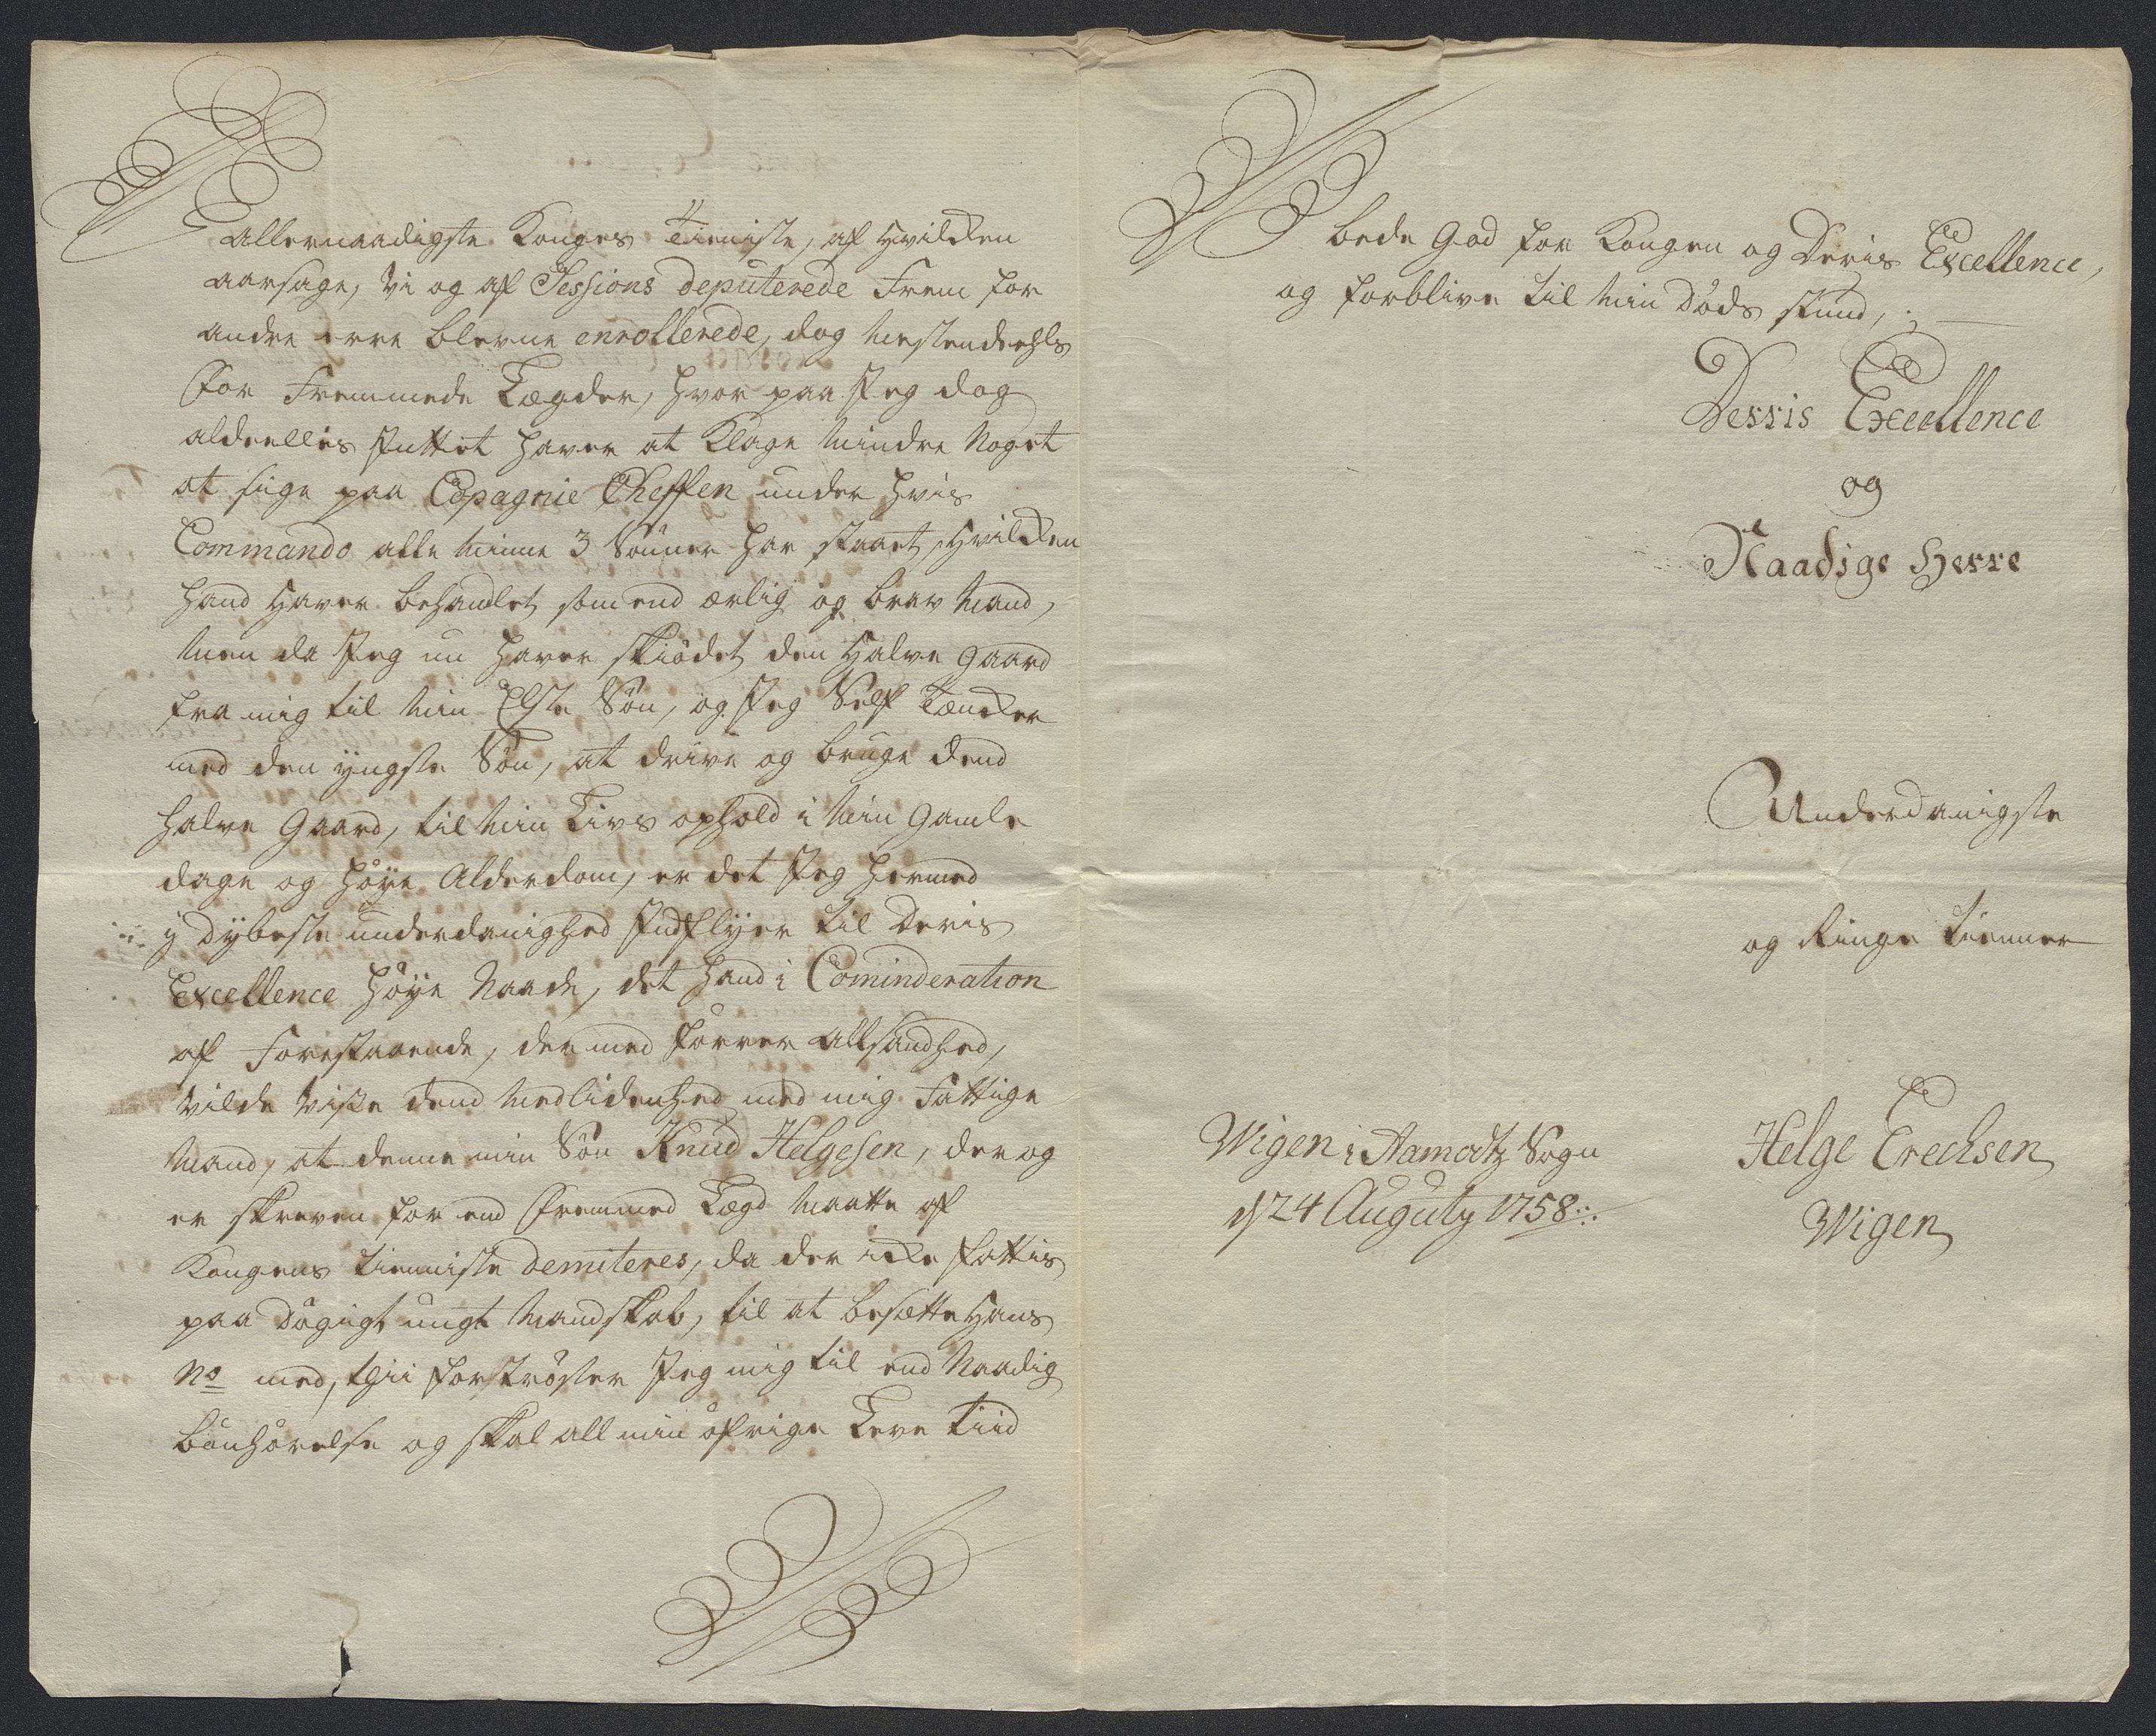 Allernaadigste Konges Tieniste, af hvilken
aarsage, vi og af Sessions deputerede Frem for
andre ere blevne enrollerede, dog mestendeehls
for Fremmede Lægder, hvor paa Jeg dog
aldeelles Intet haver at Klage mindre Noget
at sige paa Copagnie Cheffen under hvis
Commando alle minne 3 Sønner har staaet, hvilken
hand haver behandlet som end ærlig og brav Mand,
men da Jeg nu haver skiødet den halve gaard
fra mig til min Elste Søn, og Jeg Self tæncker
med den yngste Søn, at drive og bruge dend
halve Gaard, til min Livs ophold i min gamle
dage og høye Alderdom, er det Jeg hermed
y dybeste underdanighed Indflyer til Deris
Excellence høye Naade, det hand i Cominderation
af Forestaaende, der med förrer all Sandhed,
vilde viße dend medlidenhed med mig Fattige
Mand, at denne min Søn Knud Helgesen, der og
er skreven for end fremmed Lægd maatte af
Kongens tienniste demiteres, da der icke fattis
paa dügigt ungt Mandskab, til at besætte hans
No med, thi forstrøster Jeg mig til end Naadig
bønhørelse og skal all min øfrige Leve tiid
bede God for Kongen og Deris Excellence,
og forblive til min Døds stund,
Derris Excellence
og
Naadige Herre
Underdanigste
og Ringe tienner
Wigen i Aamodtz Sogn
d 24 Augusty 1758
Helge Erechsen
Wigen